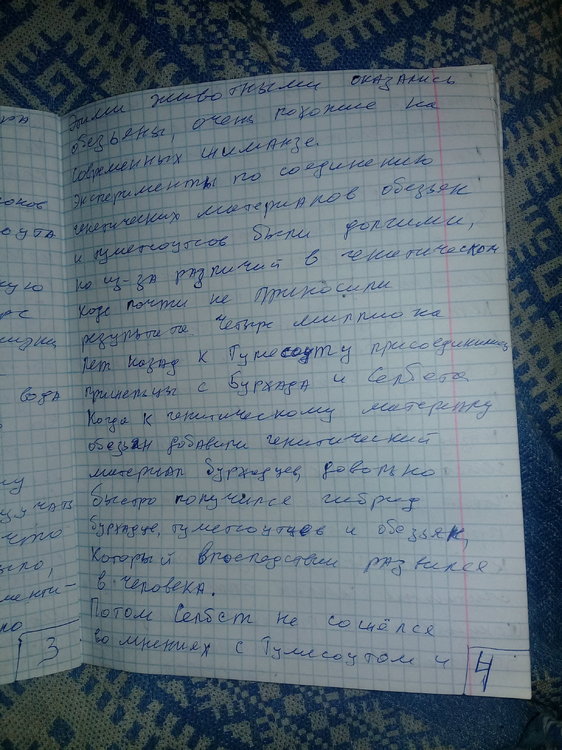 рл
оков
оута
ную
рс
изни
вода
му
учать
что
ыло,
менти-
но
3
Этими животными оказались
обезьяны, очень похожие на
современных шимпанзе.
Эксперименты по соединению
генетических материалов обезьян
и туметоутсов были долгими,
но из-за различий в генетическом
коде почти не приносили
результата четыре миллиона
лет назад к Тумесоуту присоединились
пришельцы с Бурхада и Сербета
Когда к генитическому материалу
обезьян добавили генитический
материал бурхадцев, довольно
быстро получился гибрид
бурхадце, туметсоутцев и обезьян,
который впоследствии развился
в человека.
Потом Сербет не сошёлся
во мнениях с Тумесоутом и
4